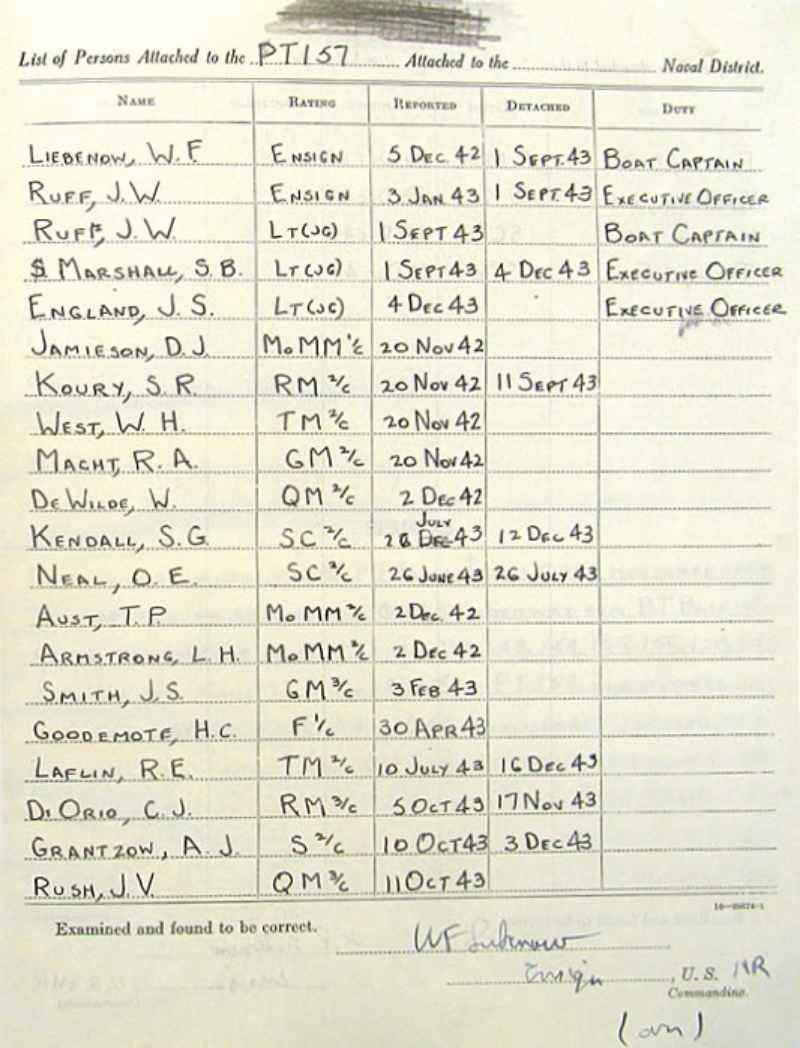 List of Persons Attached to the PT157 Attached to the Naval District.
NAME RATING REPORTED DETACHED DUTY
LIEBENOW, W. F. ENSIGN 5 DEC. 42 1 SEPT. 43 BOAT CAPTAIN
RUFF, J. W. ENSIGN 3 JAN 43 1 SEPT. 43 EXECUTIVE OFFICER
RUFF, J. W. LT(JG) 1 SEPT 43 BOAT CAPTAIN
MARSHALL, S. B. LT(JG) 1 SEPT 43 4 DEC 43 EXECUTIVE OFFICER
ENGLAND, J. S. LT(JG) 4 DEC 43 EXECUTIVE OFFICER
JAMIESON, D. J. MoMM 1/c 20 NOV 42
KOURY, S. R. RM 2/c 20 NOV 42 11 SEPT 43
WEST, W. H. TM 2/c 20 NOV 42
MACHT, R. A. GM 2/c 20 NOV 42
DE WILDE, W. QM 2/c 2 DEC 42
JULY
KENDALL, S. G. SC 2/c 26 DEC 43 12 DEC 43
NEAL, O. E. SC 3/c 26 JUNE 43 26 JULY 43
AUST, T. P. MoMM 2/c 2 DEC. 42
ARMSTRONG, L. H. MoMM 2/c 2 DEC 42
SMITH, J. S. GM 3/c 3 FEB 43
GOODEMOTE, H. C. F 1/c 30 APR 43
LAFLIN, R. E. TM 2/c 10 JULY 43 16 DEC 43
DI ORIO, C. J. RM 3/c 5 OCT 43 17 NOV 43
GRANTZOW, A. J. S 2/c 10 OCT 43 3 DEC 43
RUSH, J. V. QM 3/c 11 OCT 43
Examined and found to be correct.
WF Liebenow
Ensign, U. S. NR
Commanding.